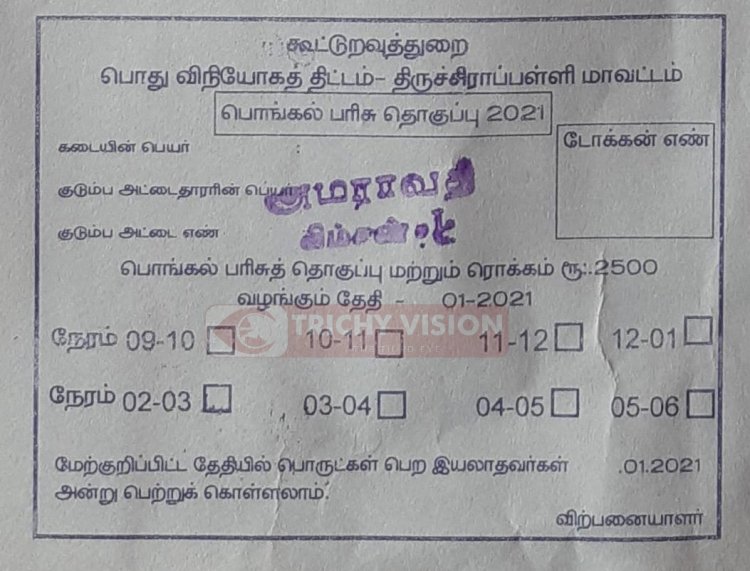 கூட்டுறவுத்துறை
பொது விநியோகத் திட்டம்– திருச்சிராப்பள்ளி மாவட்டம்
பொங்கல் பரிசு தொகுப்பு 2021
டோக்கன் எண்
கடையின் பெயர்
குடும்ப அட்டைதாரரின் பெயர்
அமராவதி
குடும்ப அட்டை எண்
பொங்கல் பரிசுத் தொகுப்பு மற்றும் ரொக்கம் ரூ:.2500
வழங்கும் தேதி - 01-2021
TRICHY VISION
நேரம் 09-10 10-11 11-12 12-01
நேரம் 02-03 03-04 04-05 05-06
மேற்குறிப்பிட்ட தேதியில் பொருட்கள் பெற இயலாதவர்கள் .01.2021
அன்று பெற்றுக் கொள்ளலாம்.
விற்பனையாளர்